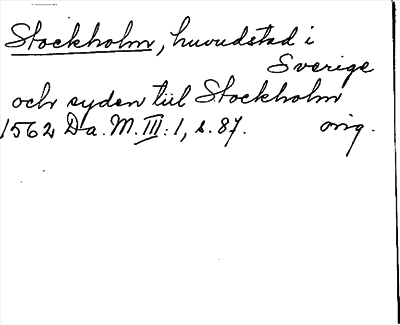 Stockholm, huvudstad i
Sverige
och syden till Stockholm
1562 Da. M. III: 1, s. 87. orig.